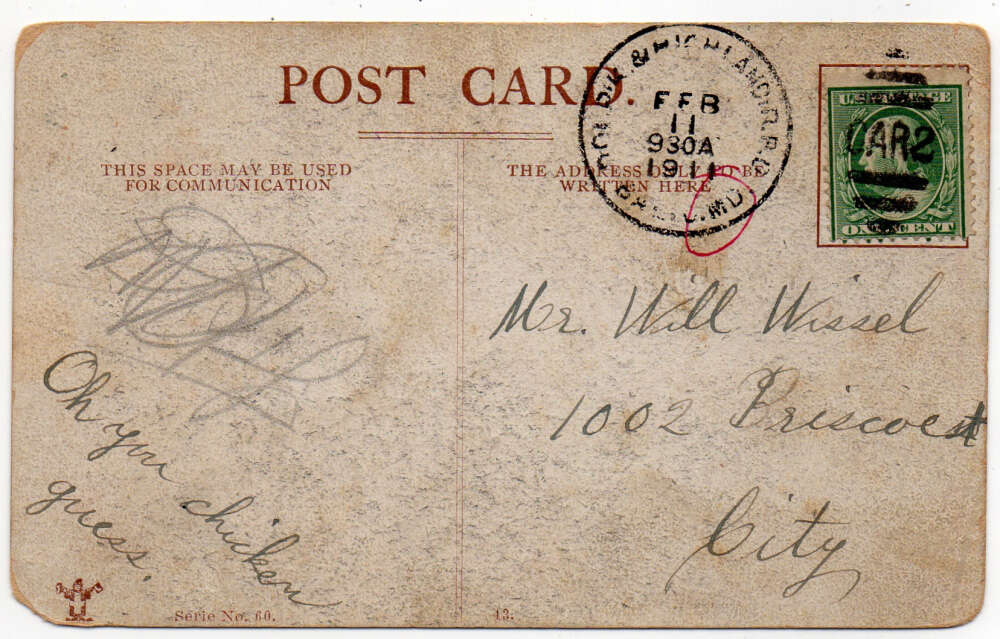 POST CARD.
THIS SPACE MAY BE USED
FOR COMMUNICATION
THE ADDRESS ONLY TO BE
WRITTEN HERE
& HIGHLAND. R.P.O.
BALTO. MD.
FEB
11
930A
1911
U.S. POSTAGE
CAR 2
ONE CENT
Mr. Will Wissel
1002 Briscoe st
City
Oh you chicken
guess.
Serie No. 60.
13.